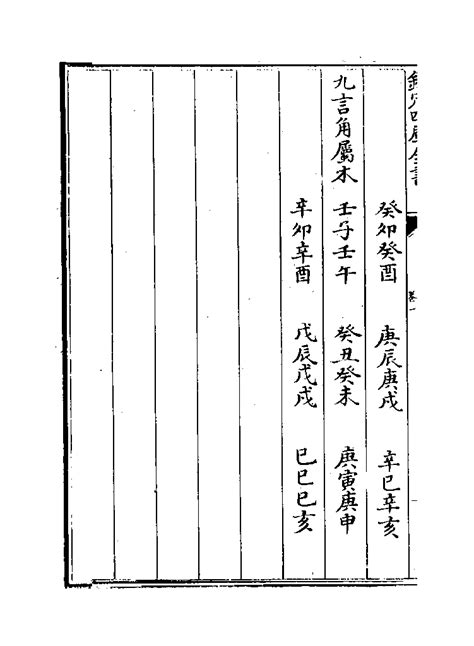 欽定四庫全書
癸卯癸酉 庚辰庚戌 辛巳辛亥
九言角屬木 壬子壬午 癸丑癸未 庚寅庚申
辛卯辛酉 戊辰戊戌 己巳己亥